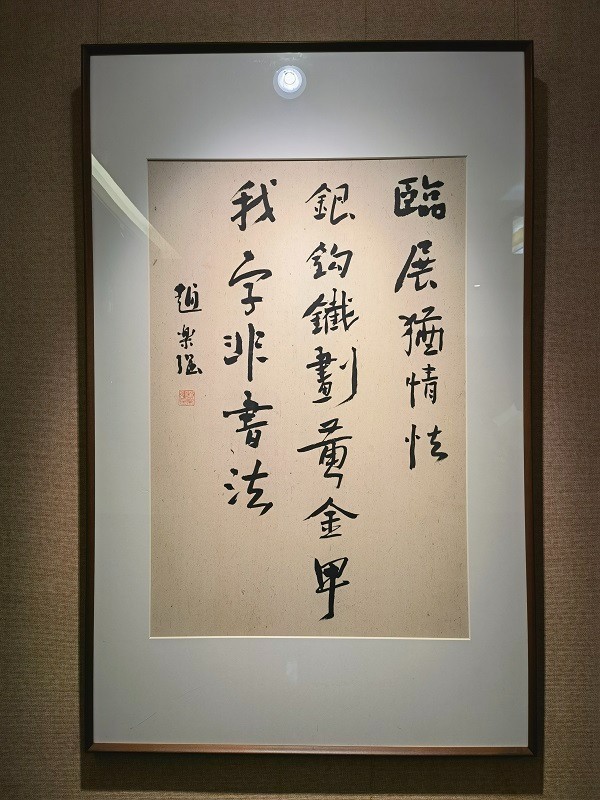 臨展猶情怯
銀鈎鐵劃黄金甲
我字非書法
趙樂强